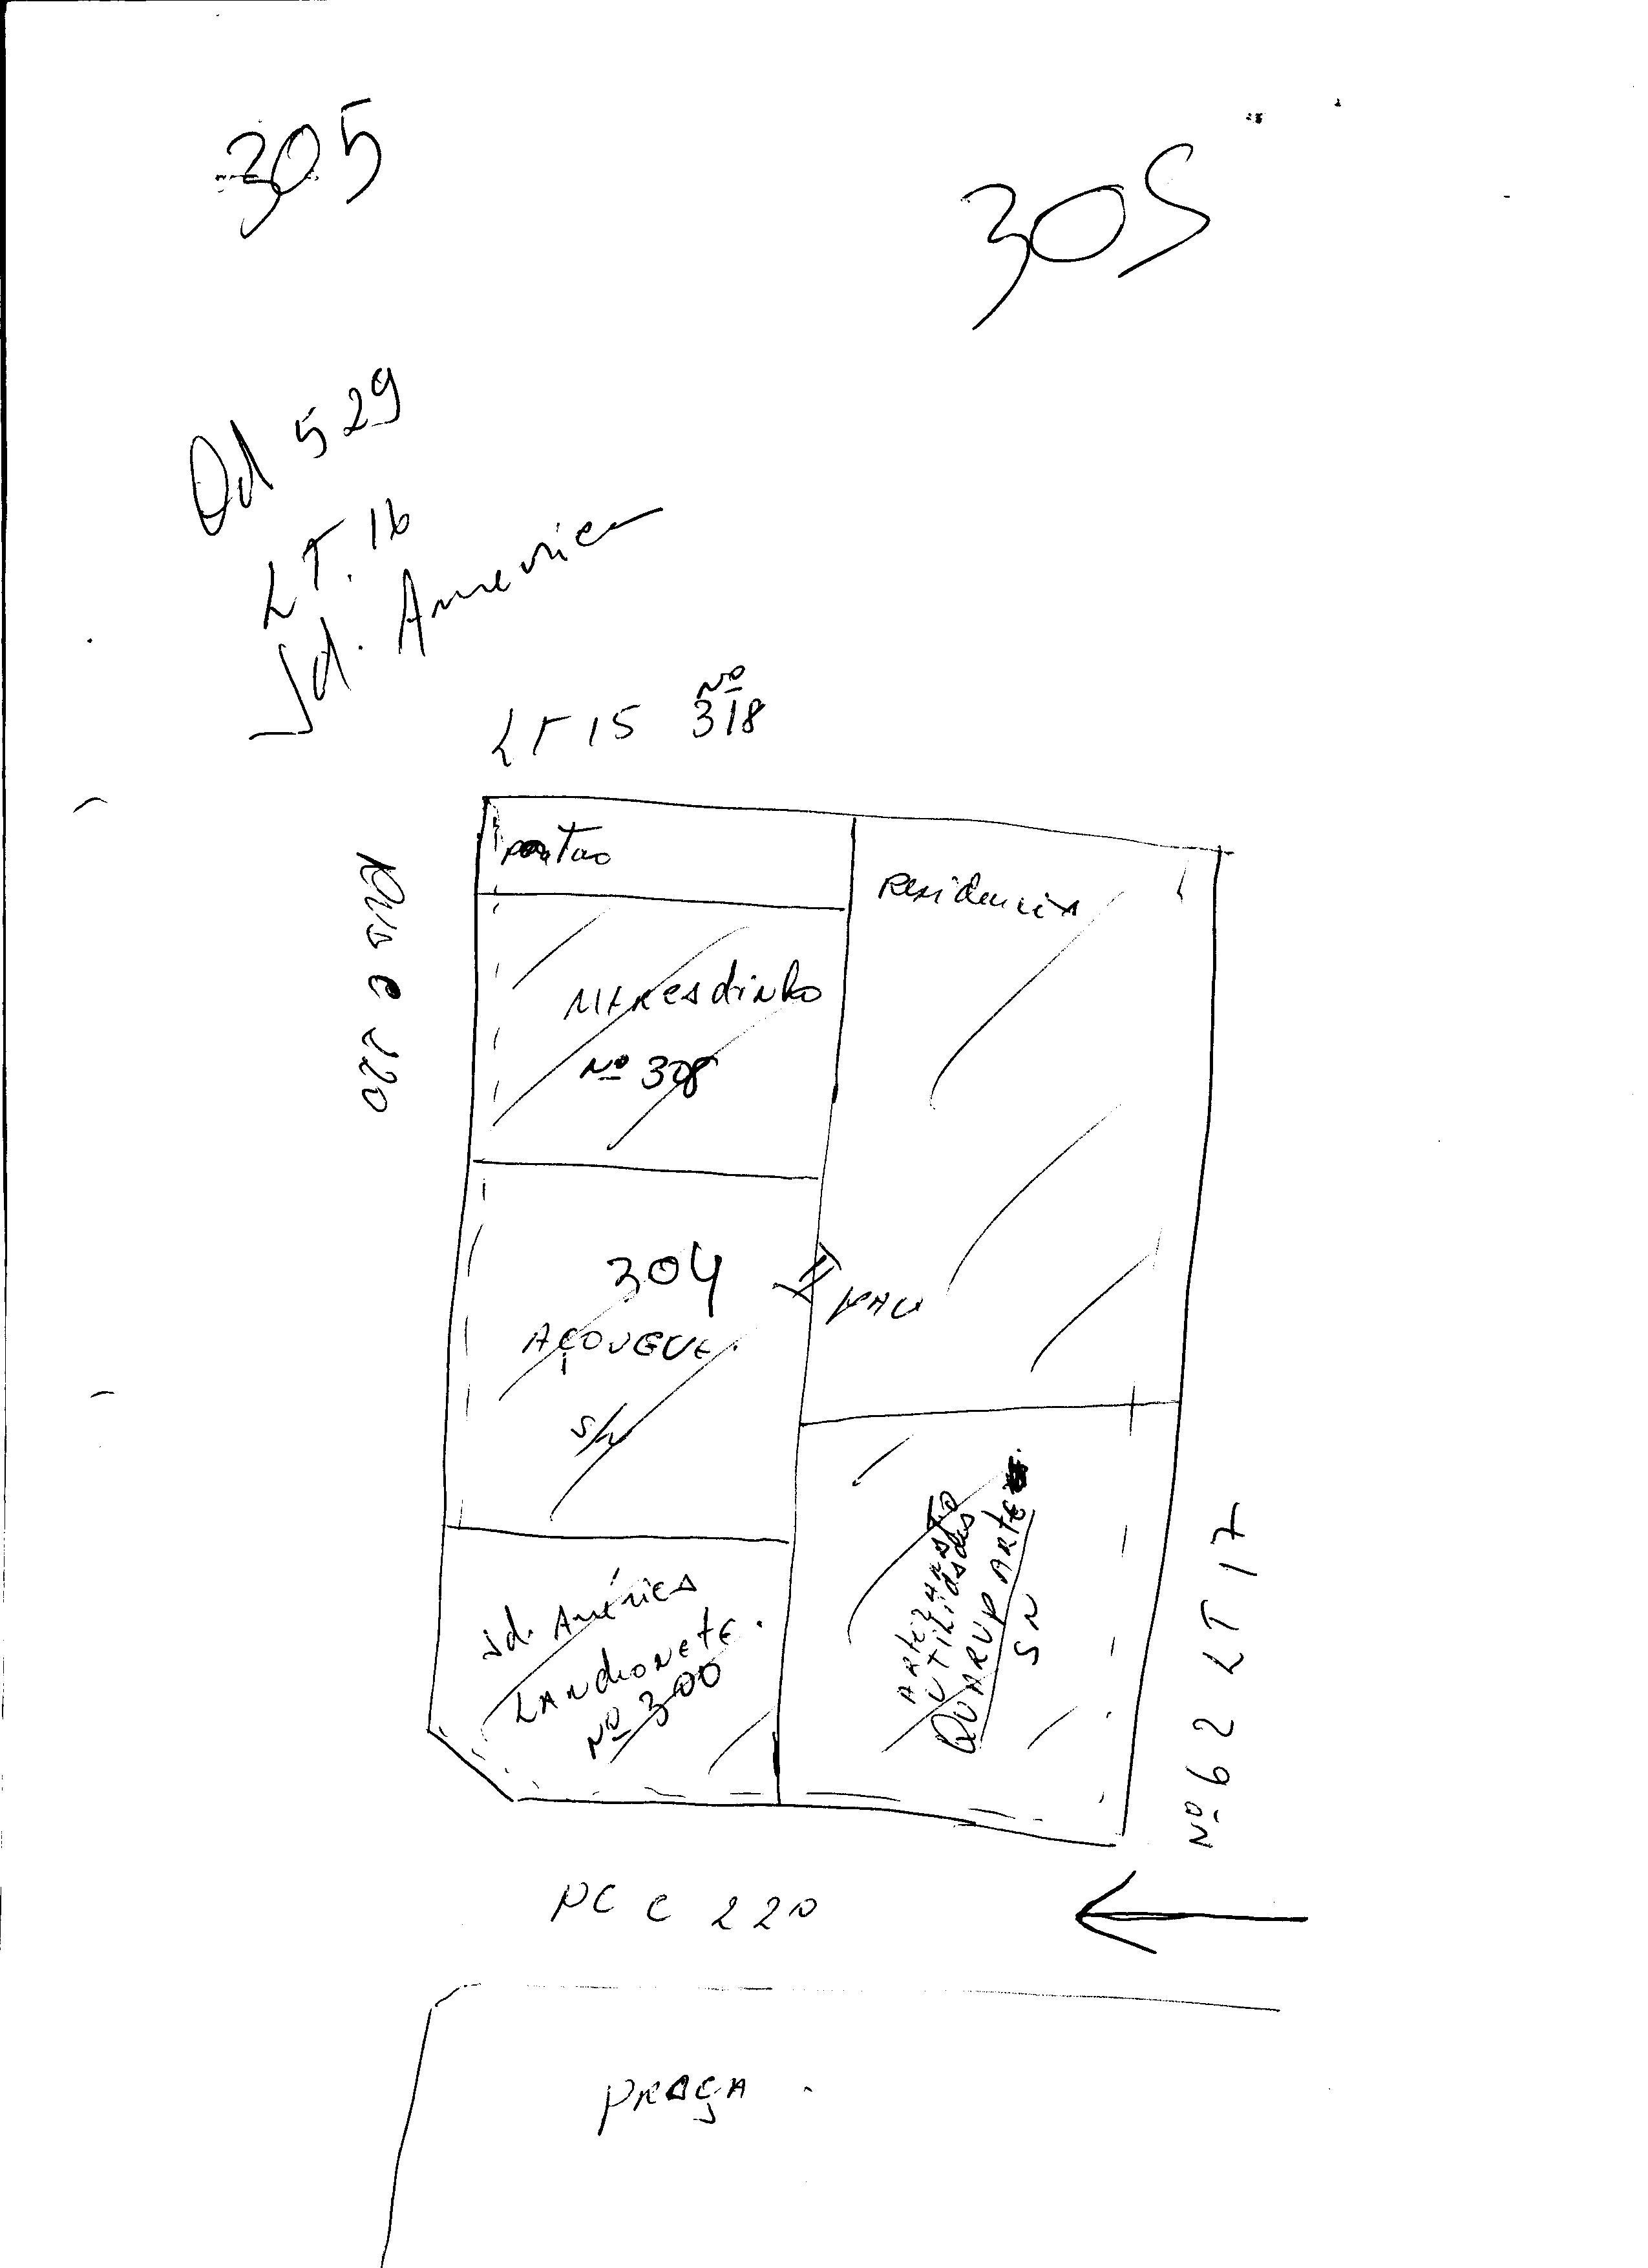 305
305
Qd 529
LT. 16
Jd. America
LT 15 Nº 318
portao
Residencia
Rua C 220
MERCadinho
Nº 308
304
AÇOUGUE.
S/N
Jd. América
LANCHONETE.
Nº 300
ARTEZANATO
UTILIDADES
QUARUP ARTE
SN
Nº 62 LT 17
PC C 220
PRAÇA